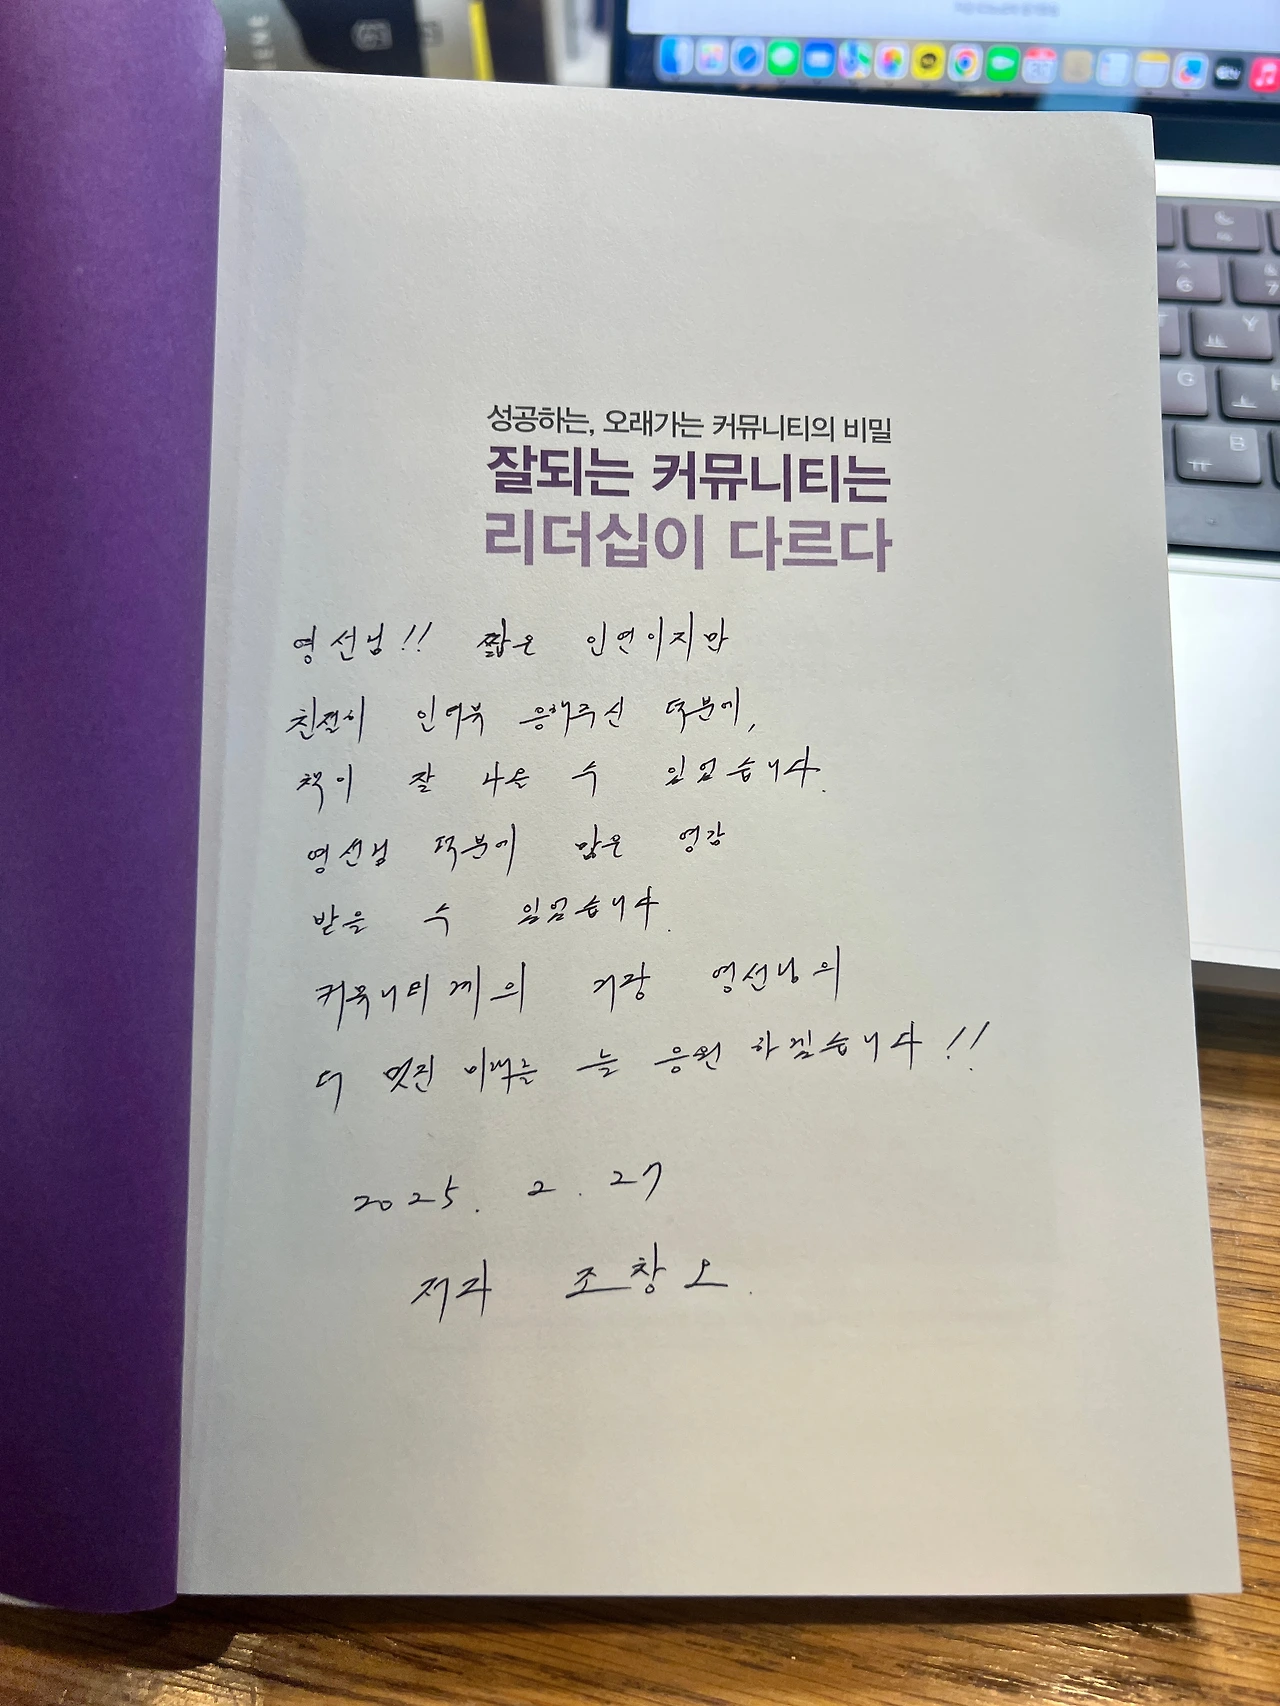 성공하는, 오래가는 커뮤니티의 비밀
잘되는 커뮤니티는
리더십이 다르다
영선님!! 짧은 인연이지만
친절히 인터뷰 응해주신 덕분에,
책이 잘 나올 수 있었습니다.
영선님 덕분에 많은 영감
받을 수 있었습니다.
커뮤니티계의 거장 영선님의
더 멋진 미래를 늘 응원 하겠습니다!!
2025. 2. 27
저자 조창오.